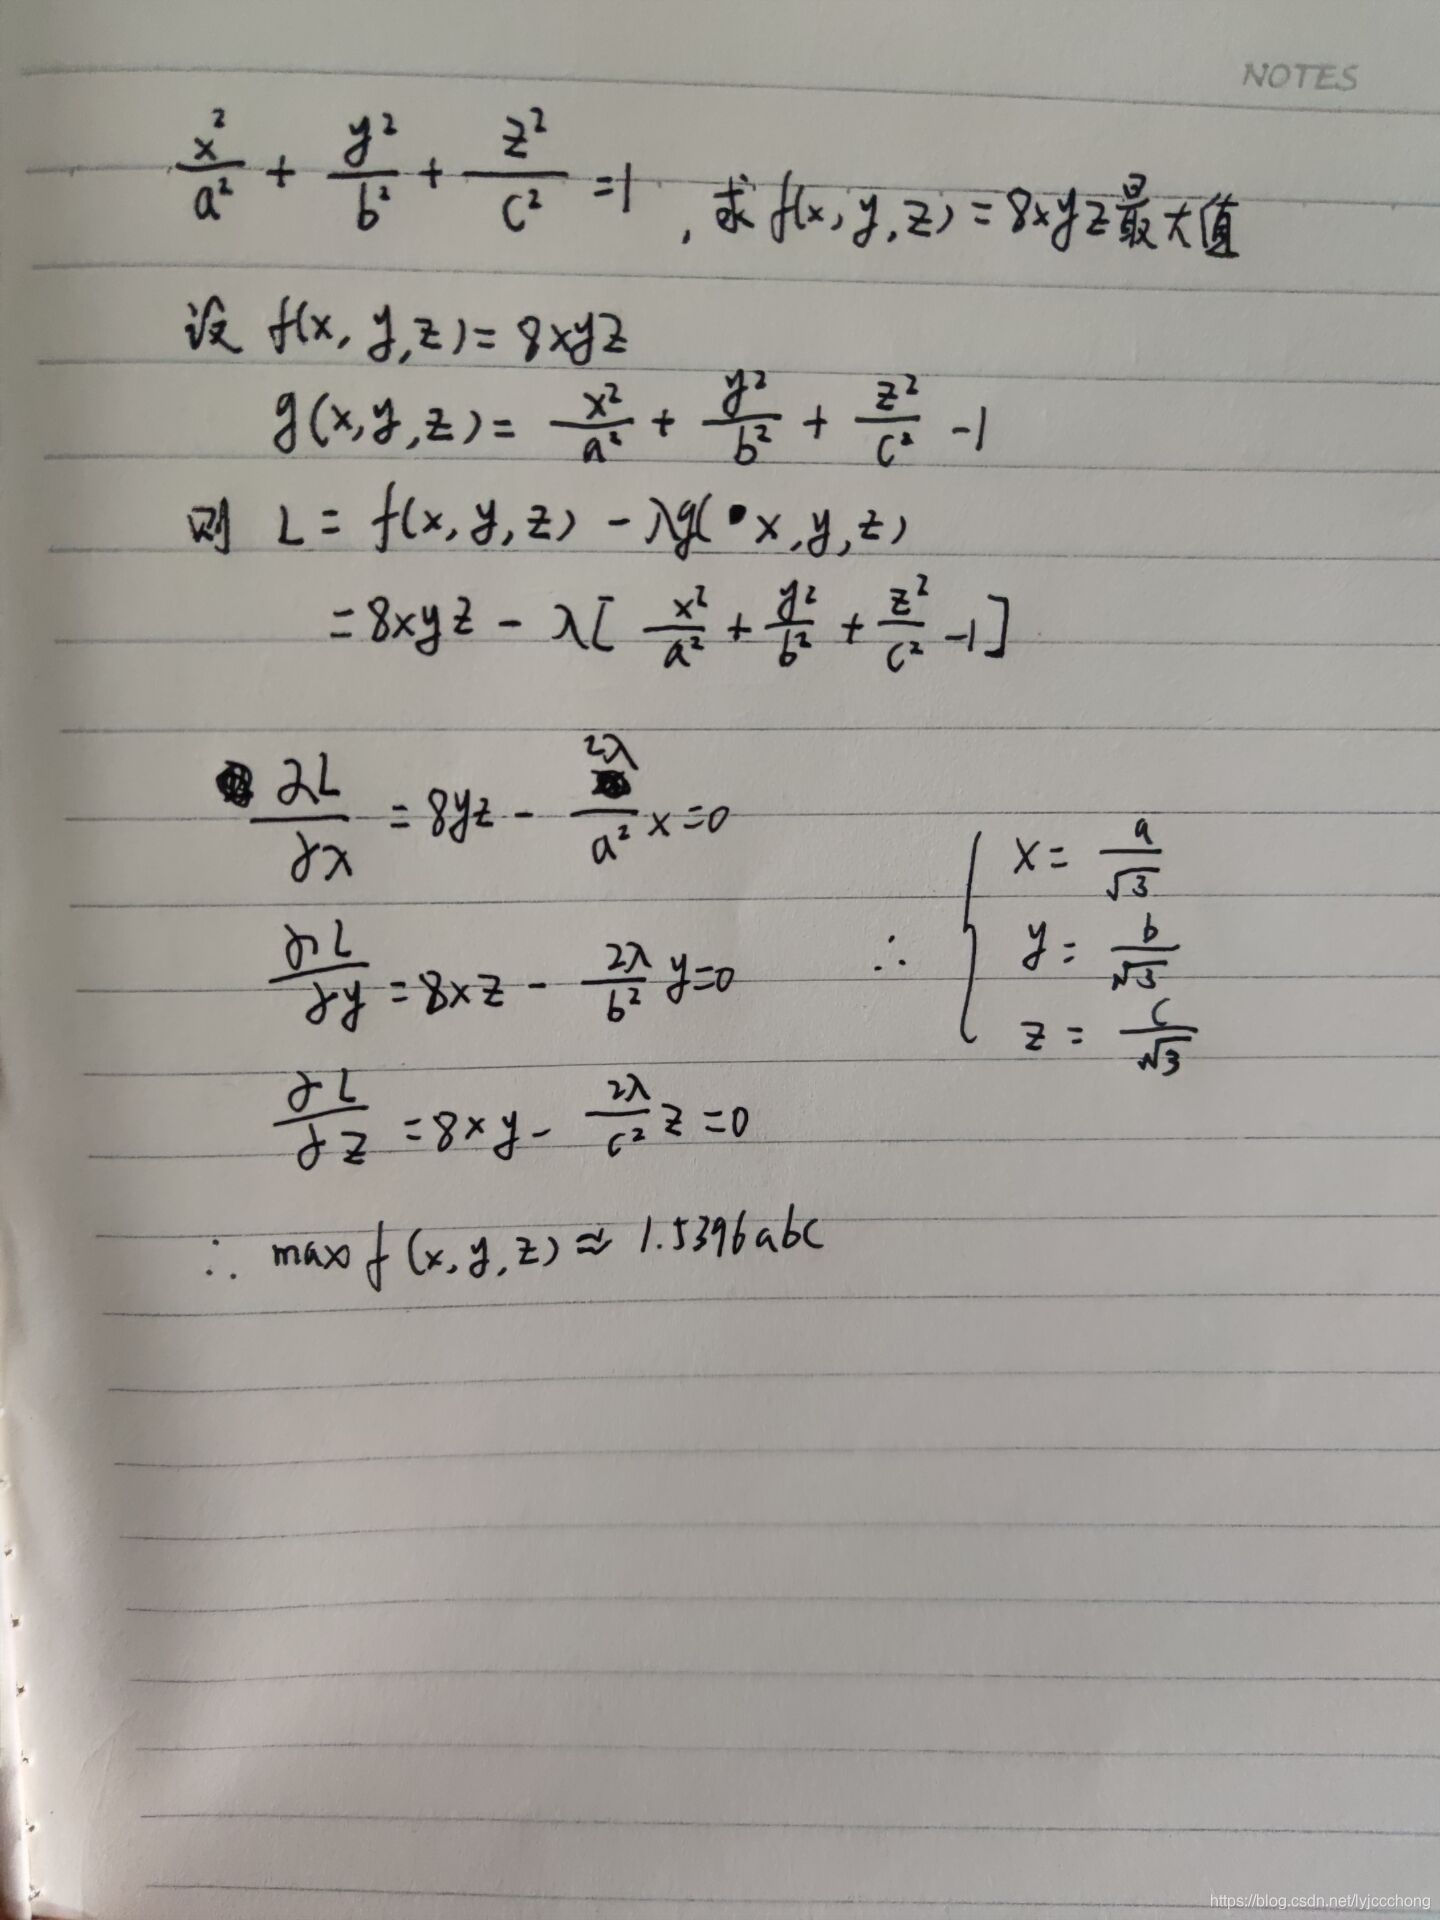 NOTES
x²/a² + y²/b² + z²/c² =1 , 求 f(x, y, z) = 8xyz 最大值
设 f(x, y, z) = 8xyz
g(x, y, z) = x²/a² + y²/b² + z²/c² -1
则 L = f(x, y, z) - λg( x, y, z)
= 8xyz - λ[ x²/a² + y²/b² + z²/c² -1 ]
∂L/∂x = 8yz - 2λ/a² x = 0
∂L/∂y = 8xz - 2λ/b² y = 0
∂L/∂z = 8xy - 2λ/c² z = 0
∴ { x = a/√3
y = b/√3
z = c/√3
∴ max f (x, y, z) ≈ 1.5396abc
https://blog.csdn.net/lyjccchong